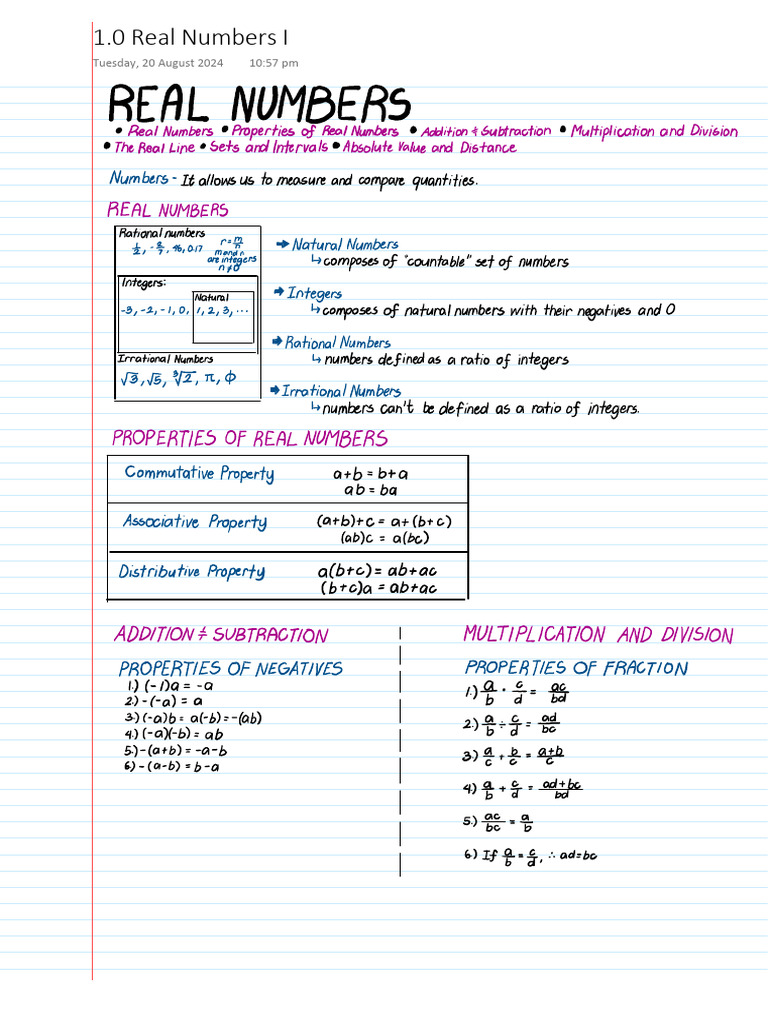 1.0 Real Numbers I
Tuesday, 20 August 2024 10:57 pm
REAL NUMBERS
• Real Numbers • Properties of Real Numbers • Addition & Subtraction • Multiplication and Division
• The Real Line • Sets and Intervals • Absolute Value and Distance
Numbers - It allows us to measure and compare quantities.
REAL NUMBERS
Rational numbers
1/2, -2/7, 46, 0.17
r = m/n
m and n
are integers
n ≠ 0
Integers:
-3, -2, -1, 0,
Natural
1, 2, 3, ...
Irrational Numbers
√3, √5, ∛2, π, ϕ
➡ Natural Numbers
↳ composes of "countable" set of numbers
➡ Integers
↳ composes of natural numbers with their negatives and 0
➡ Rational Numbers
↳ numbers defined as a ratio of integers
➡ Irrational Numbers
↳ numbers can't be defined as a ratio of integers.
PROPERTIES OF REAL NUMBERS
Commutative Property a+b = b+a
ab = ba
Associative Property (a+b)+c = a+(b+c)
(ab)c = a(bc)
Distributive Property a(b+c) = ab+ac
(b+c)a = ab+ac
ADDITION & SUBTRACTION
PROPERTIES OF NEGATIVES
1.) (-1)a = -a
2.) -(-a) = a
3.) (-a)b = a(-b) = -(ab)
4.) (-a)(-b) = ab
5.) -(a+b) = -a-b
6) -(a-b) = b-a
MULTIPLICATION AND DIVISION
PROPERTIES OF FRACTION
1.) a/b · c/d = ac/bd
2.) a/b ÷ c/d = ad/bc
3.) a/c + b/c = a+b/c
4.) a/b + c/d = ad+bc/bd
5.) ac/bc = a/b
6.) If a/b = c/d, ∴ ad=bc